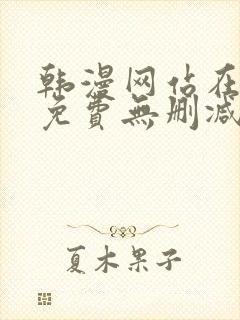 韩漫网站在
免費無删减
夏木果子